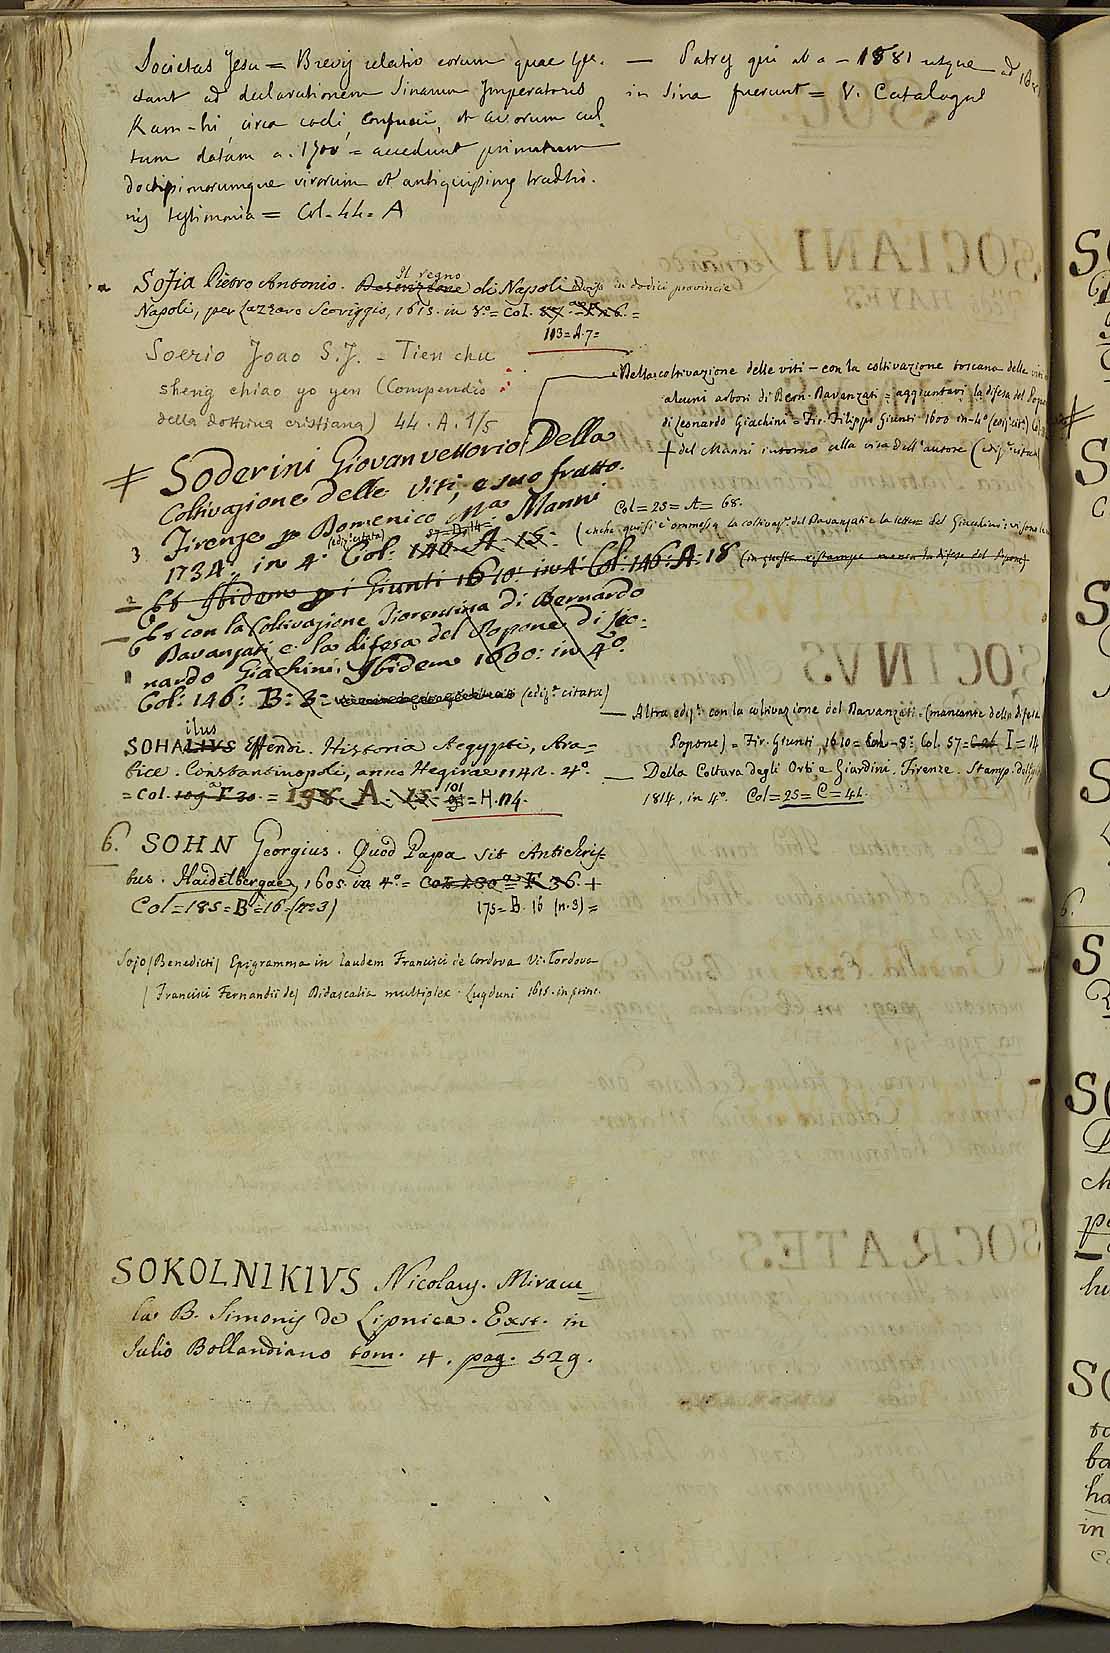 Societas Jesu = Brevis relatio eorum quae spe-
ctant ad declarationem Sinarum Imperatoris
Kam-hi, circa coeli, Confucii, et avorum cul-
tum datam a. 1700 = accedunt primatum
doctissimorumque virorum et antiquissimę traditio-
nis testimonia = Col. 44 = A
— Patres qui ab a - 1881 usque ad
in Sina fuerunt = V. Catalogus
Sofia Pietro Antonio. Descrizione Il regno di Napoli diviso in dodici provincie
Napoli, per Lazzaro Scoriggio, 1615. in 8.º = Col.
103 = A. 7 =
Soerio Joao S.J. = Tien chu
sheng chiao yo yen (Compendio
della dottrina cristiana) 44. A. 1/5
Soderini Giovanvettorio Della
Coltivazione delle Viti, e suo frutto.
3 Firenze p Domenico Mª Manni
(ediz. citata) 27 = D. 14 =
1734., in 4. Col: 146. A. 15:
2 Et Ibidem p i Giunti 1610: in 4. Col: 146: A: 18 (in questa ristampa manca la difesa del Popone)
— Et con la Coltivazione Fiorentina di Bernardo
Davanzati e la difesa del Popone di Leo:
1 nardo Giachini. Ibidem 1600: in 4º.
Col: 146: B: 3 = (ediz.ᵉ citata)
— Della coltivazione delle viti — con la coltivazione toscana delle viti e
alcuni arbori di Bern. Davanzati = aggiuntavi la difesa del Popone
di Leonardo Giachini = Fir. Filippo Giunti 1600 in-4º (ediz. cit.)
+ del Manni intorno alla vita dell'autore (ediz. citata)
Col = 25 = A = 68.
(anche qui si è ommessa la coltivaz. del Davanzati e la lettera del Giachini:
— Altra ediz.: con la coltivazione del Davanzati. (mancante della difesa
Popone) = Fir. Giunti, 1610 = 8º; Col. 57 = I = 14
— Della Coltura degli Orti e Giardini. Firenze. Stamp.
1814, in 4º. Col = 25 = C = 44.
ilus
SOHALIUS Effendi. Historia Aegypti, Ara=
bice. Constantinopoli, anno Hegirae 1142. 4º.
= Col. 109 F 30. = 198. A. 15 = 101 = H. 114.
6. SOHN Georgius. Quod Papa sit Antichris-
tus. Haidelbergae, 1605. in 4º. = Col. 150 = F. 36. +
Col = 185 = B = 16 = (n. 3) 175 = B. 16 (n. 3) =
Sojo (Benedicti) Epigramma in laudem Francisci de Cordova V. Cordova
(Francisci Fernandii de) Didascalia multiplex. Lugduni 1615. in princ.
SOKOLNIKIVS Nicolaus. Miracu=
la B. Simonis de Lipnica. Exst. in
Julio Bollandiano tom. 4. pag. 529.